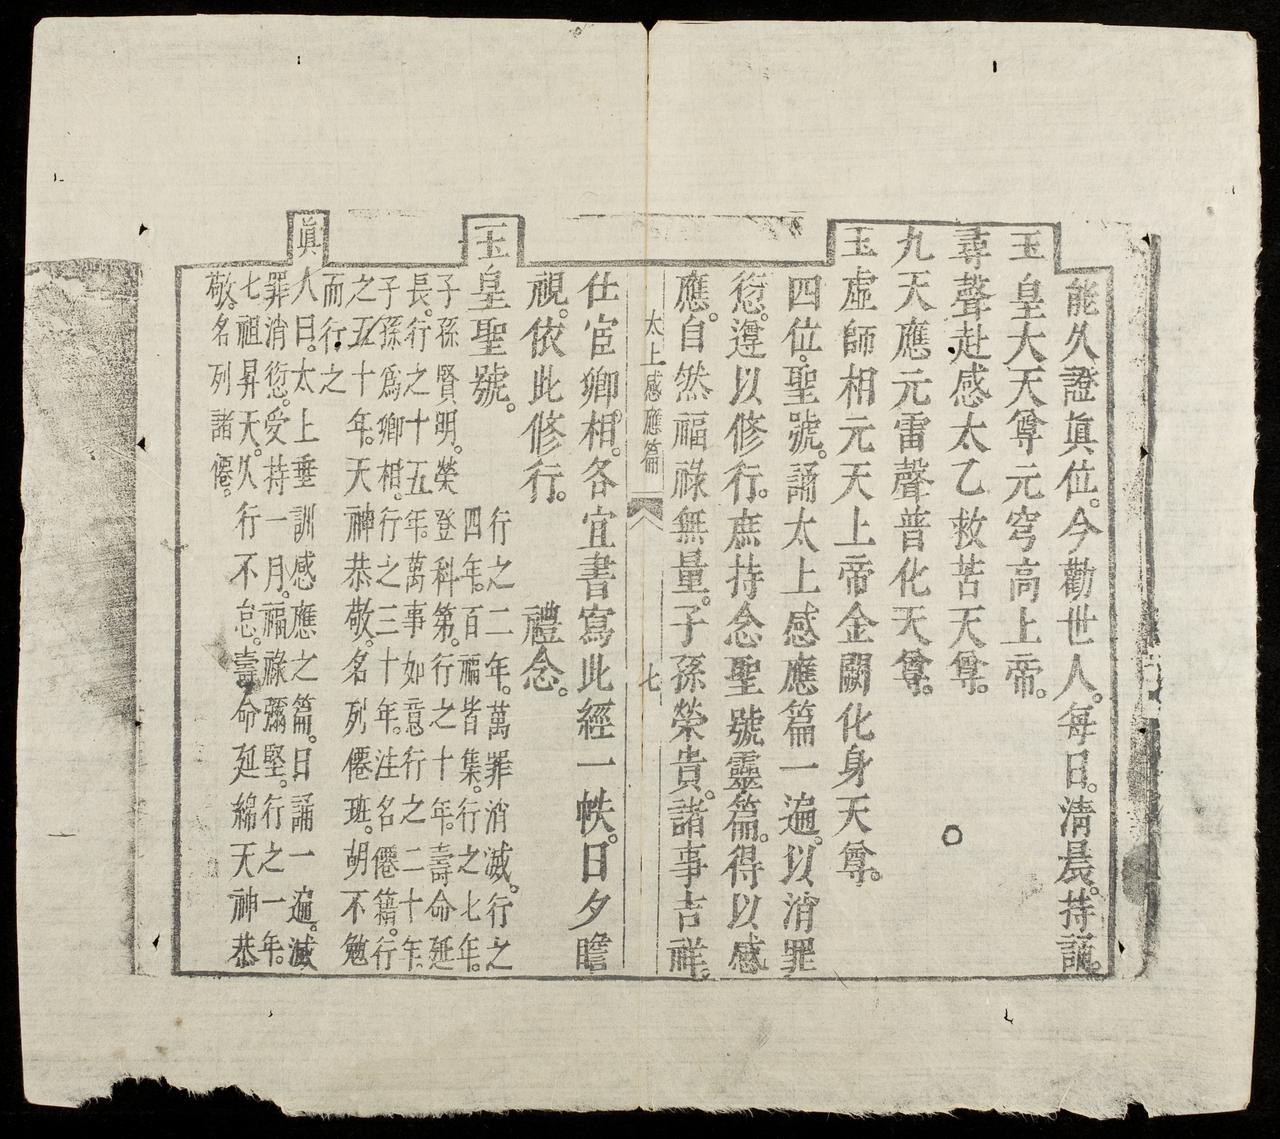 能久證眞位。今勸世人。每日。清晨。持誦。
玉皇大天尊元穹高上帝。
尋聲赴感太乙救苦天尊。
九天應元雷聲普化天尊。
玉虛師相元天上帝金闕化身天尊。
四位。聖號。誦太上感應篇一遍。以消罪
愆。遵以修行。庶持念聖號靈篇。得以感
應。自然福祿無量。子孫榮貴。諸事吉祥。
太上感應篇 七
仕宦卿相。各宜書寫此經一帙。日夕瞻
視。依此修行。 禮念。
玉皇聖號。
行之二年。萬罪消滅。行之
四年。百福皆集。行之七年。
子孫賢明。榮登科第。行之十年。壽命延
長。行之十五年。萬事如意行之二十年。
子孫爲卿相。行之三十年。注名僊籍。行
之五十年。天神恭敬。名列僊班。胡不勉
而行之
眞人曰。太上垂訓感應之篇。日誦一遍。滅
罪消愆。受持一月。福祿彌堅。行之一年。
七祖昇天。久行不怠。壽命延綿天神恭
敬。名列諸僊。